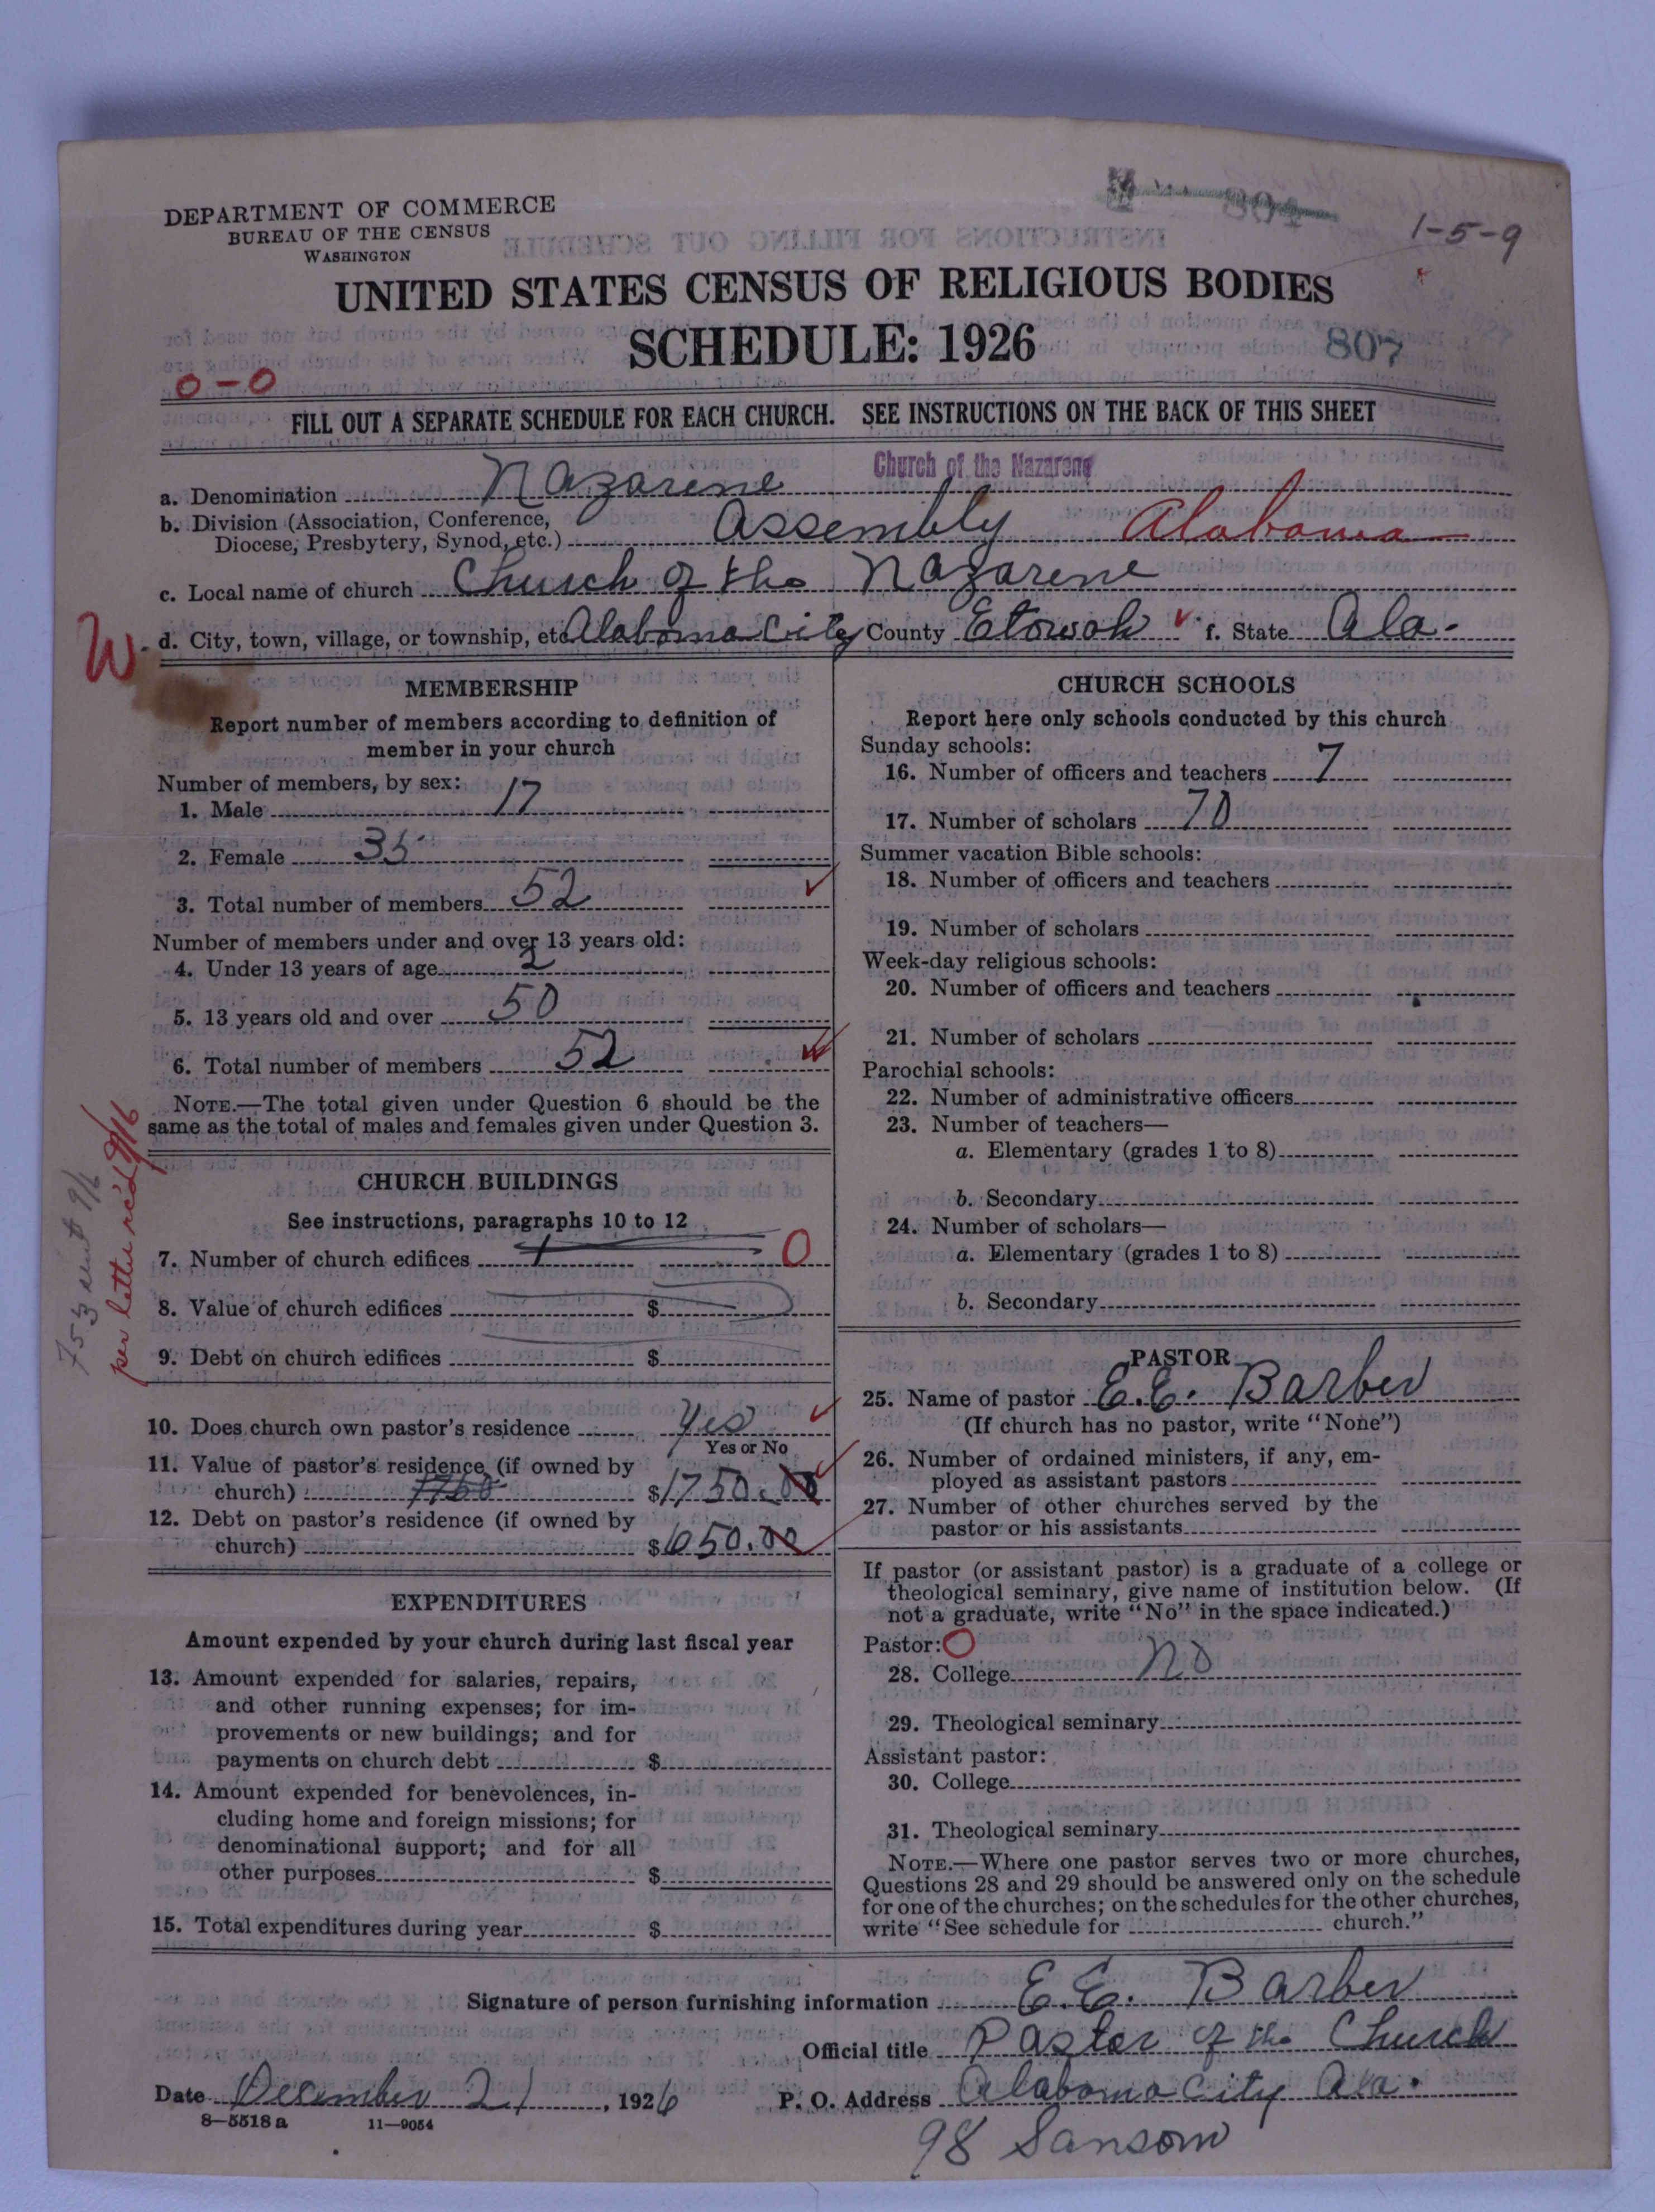 1-5-9
DEPARTMENT OF COMMERCE
BUREAU OF THE CENSUS
WASHINGTON
UNITED STATES CENSUS OF RELIGIOUS BODIES
SCHEDULE: 1926
807
0-0
FILL OUT A SEPARATE SCHEDULE FOR EACH CHURCH. SEE INSTRUCTIONS ON THE BACK OF THIS SHEET
a. Denomination Nazarene Church of the Nazarene
b. Division (Association, Conference,
Diocese, Presbytery, Synod, etc.) Assembly Alabama
c. Local name of church Church of the Nazarene
W. d. City, town, village, or township, etc. Alabama City County Etowah f. State Ala.
MEMBERSHIP
Report number of members according to definition of
member in your church
Number of members, by sex:
1. Male 17
2. Female 35
3. Total number of members 52
Number of members under and over 13 years old:
4. Under 13 years of age 2
5. 13 years old and over 50
6. Total number of members 52
NOTE.—The total given under Question 6 should be the
same as the total of males and females given under Question 3.
753 sent 9/6
per letter rec'd 9/16
CHURCH BUILDINGS
See instructions, paragraphs 10 to 12
7. Number of church edifices 1 0
8. Value of church edifices $
9. Debt on church edifices $
10. Does church own pastor's residence Yes
Yes or No
11. Value of pastor's residence (if owned by
church) 1750 $1750.00
12. Debt on pastor's residence (if owned by
church) $650.00
EXPENDITURES
Amount expended by your church during last fiscal year
13. Amount expended for salaries, repairs,
and other running expenses; for im-
provements or new buildings; and for
payments on church debt $
14. Amount expended for benevolences, in-
cluding home and foreign missions; for
denominational support; and for all
other purposes $
15. Total expenditures during year $
CHURCH SCHOOLS
Report here only schools conducted by this church
Sunday schools:
16. Number of officers and teachers 7
17. Number of scholars 70
Summer vacation Bible schools:
18. Number of officers and teachers
19. Number of scholars
Week-day religious schools:
20. Number of officers and teachers
21. Number of scholars
Parochial schools:
22. Number of administrative officers
23. Number of teachers—
a. Elementary (grades 1 to 8)
b. Secondary
24. Number of scholars—
a. Elementary (grades 1 to 8)
b. Secondary
PASTOR
25. Name of pastor E.E. Barber
(If church has no pastor, write "None")
26. Number of ordained ministers, if any, em-
ployed as assistant pastors
27. Number of other churches served by the
pastor or his assistants
If pastor (or assistant pastor) is a graduate of a college or
theological seminary, give name of institution below. (If
not a graduate, write "No" in the space indicated.)
Pastor: O
28. College No
29. Theological seminary
Assistant pastor:
30. College
31. Theological seminary
NOTE.—Where one pastor serves two or more churches,
Questions 28 and 29 should be answered only on the schedule
for one of the churches; on the schedules for the other churches,
write "See schedule for church."
Signature of person furnishing information E.E. Barber
Official title Pastor of the Church
Date December 21, 1926 P. O. Address Alabama City Ala.
8-5518a 11-9054
98 Sansom